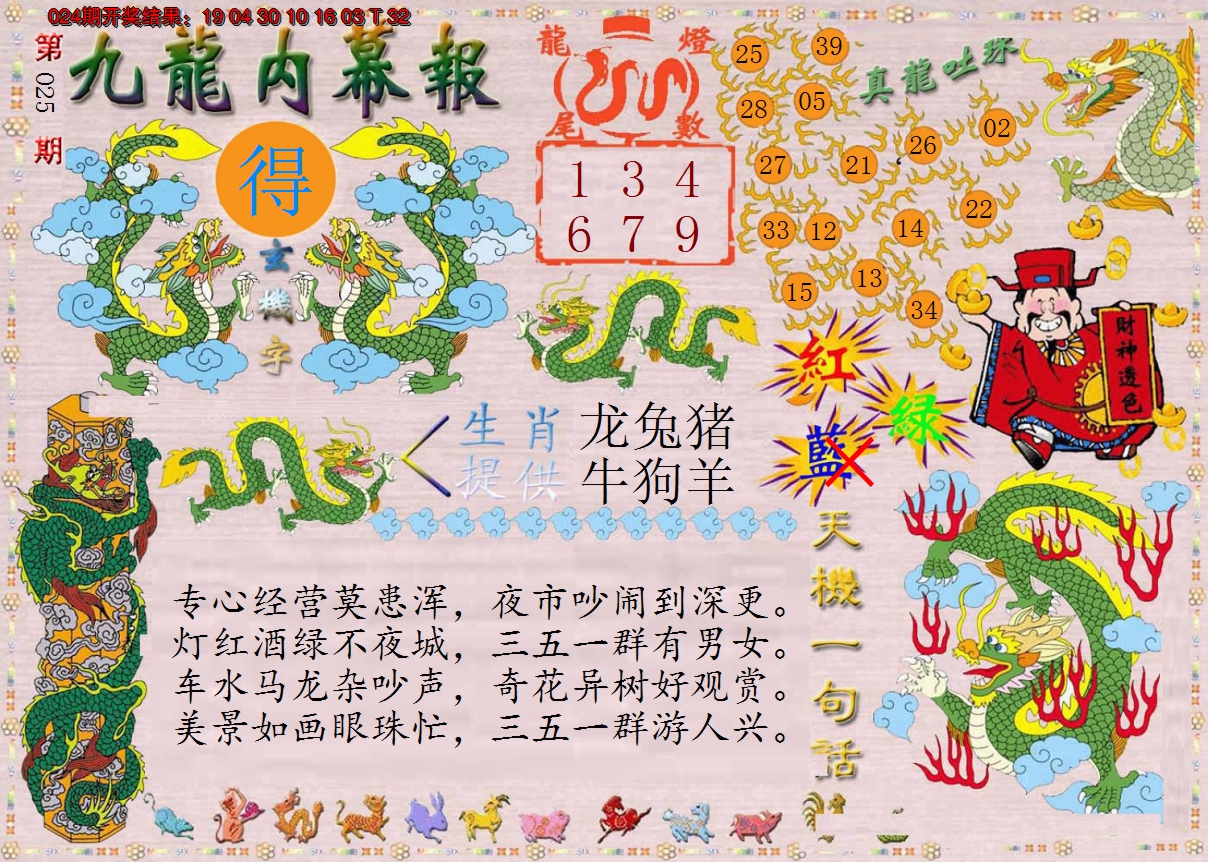 024期开奖结果：19 04 30 10 16 03 T 32
第025期
九龍内幕報
得
玄機字
龍燈
尾數
1 3 4
6 7 9
真龍吐珠
25 39
28 05
26 02
27 21
33 12 14 22
15 13
34
財神透色
紅
绿
藍
生肖 龙兔猪
提供 牛狗羊
天機一句话
专心经营莫患浑，夜市吵闹到深更。
灯红酒绿不夜城，三五一群有男女。
车水马龙杂吵声，奇花异树好观赏。
美景如画眼珠忙，三五一群游人兴。